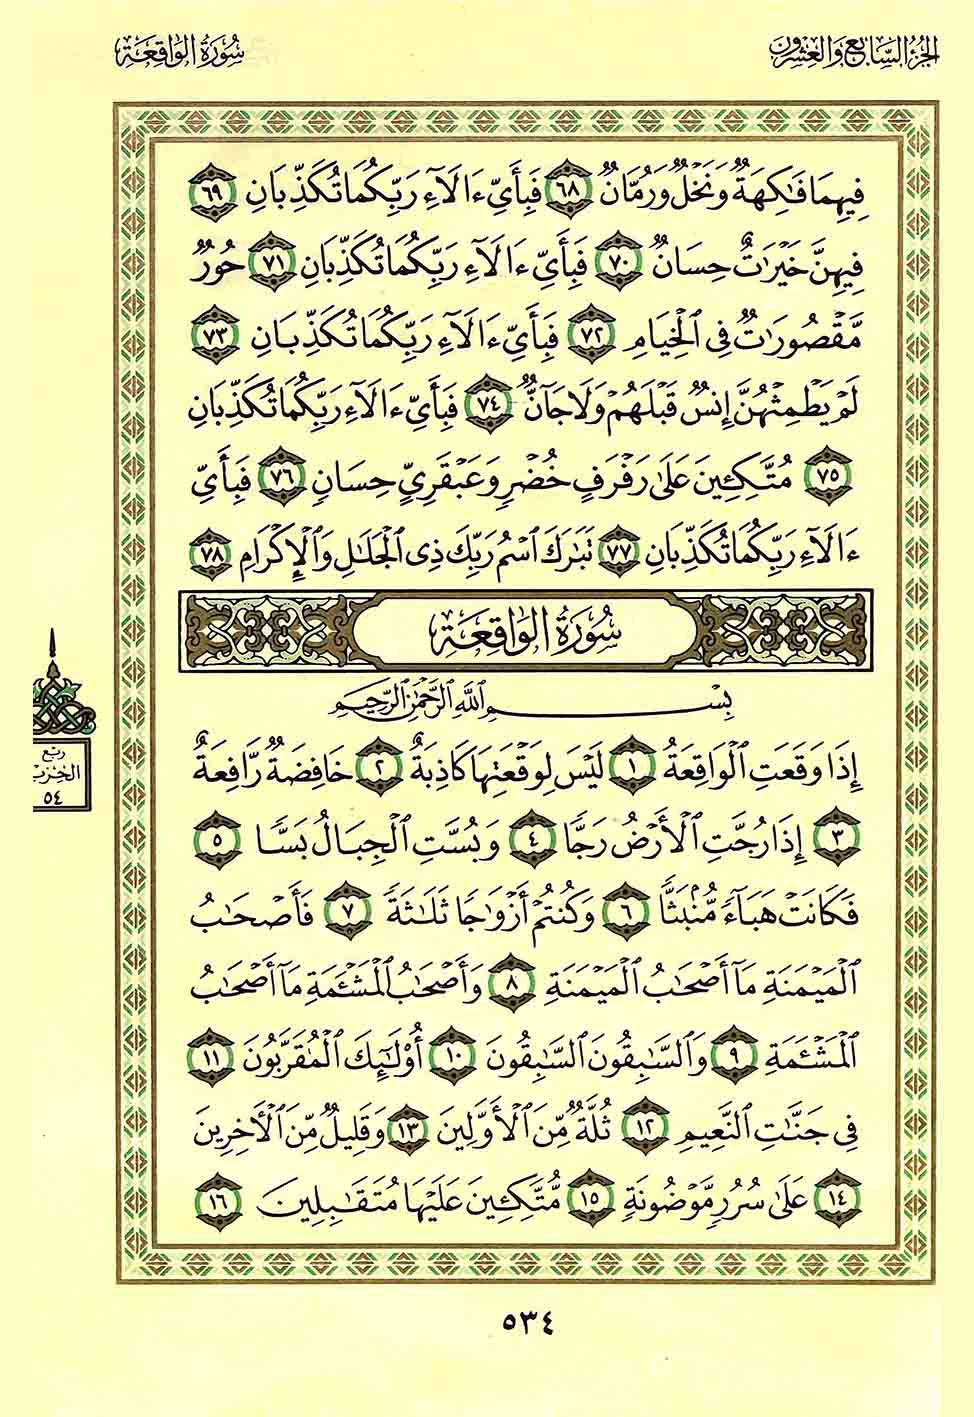 الجزء السابع والعشرون
سورة الواقعة
فِيهِمَا فَٰكِهَةٌ وَنَخْلٌ وَرُمَّانٌ ٦٨ فَبِأَيِّ ءَالَآءِ رَبِّكُمَا تُكَذِّبَانِ ٦٩
فِيهِنَّ خَيْرَٰتٌ حِسَانٌ ٧٠ فَبِأَيِّ ءَالَآءِ رَبِّكُمَا تُكَذِّبَانِ ٧١ حُورٌ
مَّقْصُورَٰتٌ فِى ٱلْخِيَامِ ٧٢ فَبِأَيِّ ءَالَآءِ رَبِّكُمَا تُكَذِّبَانِ ٧٣
لَمْ يَطْمِثْهُنَّ إِنسٌ قَبْلَهُمْ وَلَا جَآنٌّ ٧٤ فَبِأَيِّ ءَالَآءِ رَبِّكُمَا تُكَذِّبَانِ
٧٥ مُتَّكِـِٔينَ عَلَىٰ رَفْرَفٍ خُضْرٍ وَعَبْقَرِيٍّ حِسَانٍ ٧٦ فَبِأَيِّ
ءَالَآءِ رَبِّكُمَا تُكَذِّبَانِ ٧٧ تَبَٰرَكَ ٱسْمُ رَبِّكَ ذِى ٱلْجَلَٰلِ وَٱلْإِكْرَامِ ٧٨
سُورَةُ الوَاقِعَةِ
بِسْمِ اللَّهِ الرَّحْمَٰنِ الرَّحِيمِ
إِذَا وَقَعَتِ ٱلْوَاقِعَةُ ١ لَيْسَ لِوَقْعَتِهَا كَاذِبَةٌ ٢ خَافِضَةٌ رَّافِعَةٌ
٣ إِذَا رُجَّتِ ٱلْأَرْضُ رَجًّا ٤ وَبُسَّتِ ٱلْجِبَالُ بَسًّا ٥
فَكَانَتْ هَبَآءً مُّنۢبَثًّا ٦ وَكُنتُمْ أَزْوَٰجًا ثَلَٰثَةً ٧ فَأَصْحَٰبُ
ٱلْمَيْمَنَةِ مَآ أَصْحَٰبُ ٱلْمَيْمَنَةِ ٨ وَأَصْحَٰبُ ٱلْمَشْـَٔمَةِ مَآ أَصْحَٰبُ
ٱلْمَشْـَٔمَةِ ٩ وَٱلسَّٰبِقُونَ ٱلسَّٰبِقُونَ ١٠ أُو۟لَٰٓئِكَ ٱلْمُقَرَّبُونَ ١١
فِى جَنَّٰتِ ٱلنَّعِيمِ ١٢ ثُلَّةٌ مِّنَ ٱلْأَوَّلِينَ ١٣ وَقَلِيلٌ مِّنَ ٱلْأَخِرِينَ
١٤ عَلَىٰ سُرُرٍ مَّوْضُونَةٍ ١٥ مُّتَّكِـِٔينَ عَلَيْهَا مُتَقَٰبِلِينَ ١٦
ربع
الحزب
٥٤
٥٣٤